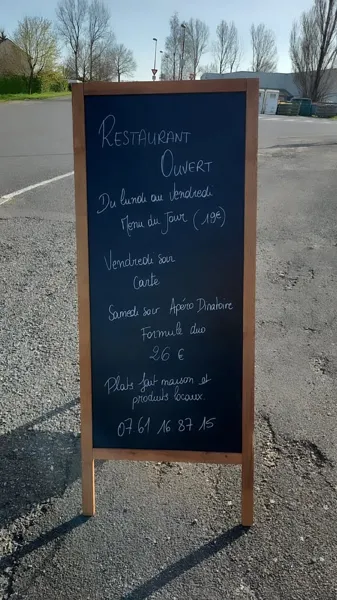 RESTAURANT
OUVERT
Du lundi au vendredi
Menu du Jour (19€)
Vendredi soir
Carte
Samedi soir Apéro Dinatoire
Formule duo
26 €
Plats fait maison et
produits locaux
07 61 16 87 15